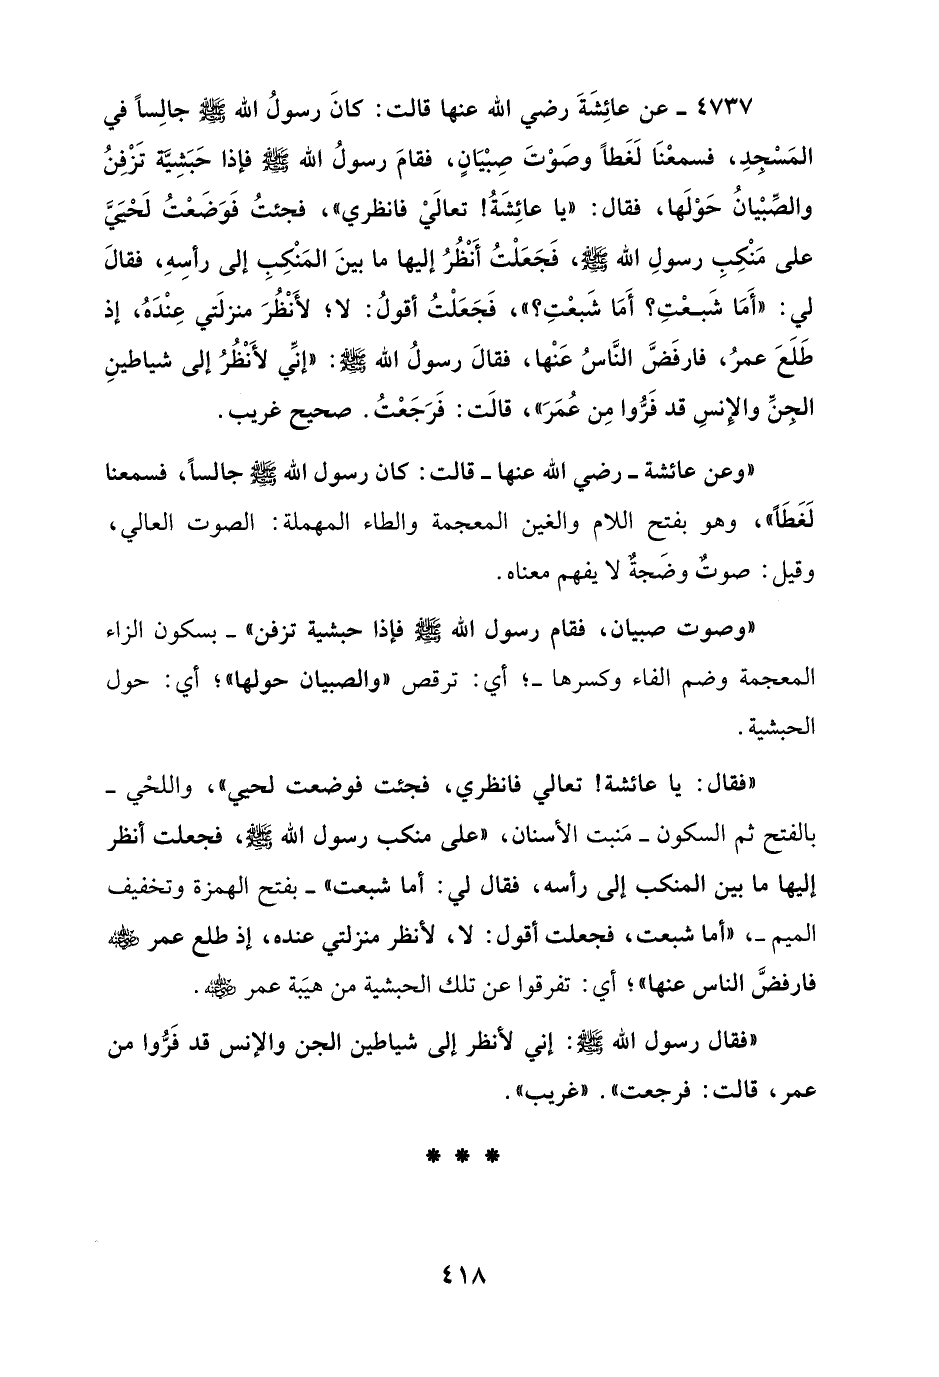 ٤٧٣٧ ـ عن عائِشَةَ رضي الله عنها قالت: كانَ رسولُ الله ﷺ جالِساً في
المَسْجِدِ، فسمعْنَا لَغَطاً وصَوْتَ صِبْيَانٍ، فقامَ رسولُ الله ﷺ فإذا حَبَشِيَّة تَزْفِنُ
والصِّبْيانُ حَوْلَها، فقال: «يا عائِشَةُ! تعالَيْ فانظري»، فجئتُ فَوَضَعْتُ لَحْيَيَّ
على مَنْكِبِ رسولِ الله ﷺ، فَجَعَلْتُ أَنْظُرُ إليها ما بينَ المَنْكِبِ إلى رأسِهِ، فقالَ
لي: «أَمَا شَبعْتِ؟ أمَا شَبعْتِ؟»، فَجَعَلْتُ أقولُ: لا؛ لأَنْظُرَ منزلَتي عِنْدَهُ، إذ
طَلَعَ عمرُ، فارفَضَّ النَّاسُ عَنْها، فقالَ رسولُ الله ﷺ: «إنِّي لأَنْظُرُ إلى شياطينِ
الجِنِّ والإنسِ قد فَرُّوا مِن عُمَرَ»، قالَت: فَرَجَعْتُ. صحيح غريب.
«وعن عائشة ـ رضي الله عنها ـ قالت: كان رسول الله ﷺ جالساً، فسمعنا
لَغَطَاً»، وهو بفتح اللام والغين المعجمة والطاء المهملة: الصوت العالي،
وقيل: صوتٌ وضَجةٌ لا يفهم معناه.
«وصوت صبيان، فقام رسول الله ﷺ فإذا حبشية تزفن» ـ بسكون الزاء
المعجمة وضم الفاء وكسرها ـ؛ أي: ترقص «والصبيان حولها»؛ أي: حول
الحبشية.
«فقال: يا عائشة! تعالي فانظري، فجئت فوضعت لحيي»، واللحْي ـ
بالفتح ثم السكون ـ مَنبت الأسنان، «على منكب رسول الله ﷺ، فجعلت أنظر
إليها ما بين المنكب إلى رأسه، فقال لي: أما شبعت» ـ بفتح الهمزة وتخفيف
الميم ـ، «أما شبعت، فجعلت أقول: لا، لأنظر منزلتي عنده، إذ طلع عمر ﷺ
فارفضَّ الناس عنها»؛ أي: تفرقوا عن تلك الحبشية من هيبَة عمر ﷺ.
«فقال رسول الله ﷺ: إني لأنظر إلى شياطين الجن والإنس قد فَرُّوا من
عمر، قالت: فرجعت». «غريب».
* * *
٤١٨